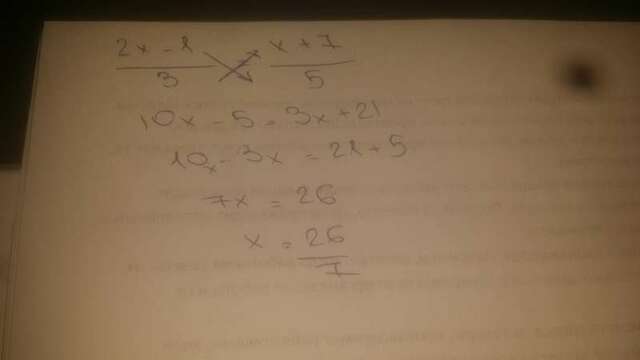 2x - 1 / 3 = x + 7 / 5
10x - 5 = 3x + 21
10x - 3x = 21 + 5
7x = 26
x = 26 / 7